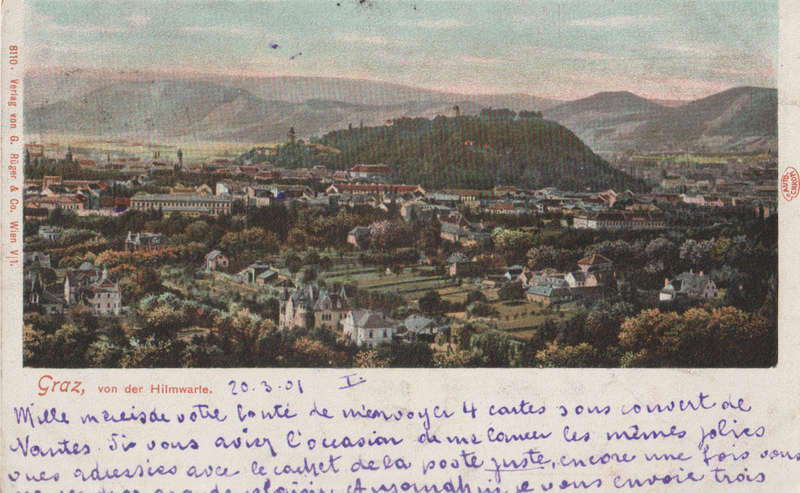 8110. Verlag von G. Rüger & Co, Wien VI1.
AUTO CHROM
Graz, von der Hilmwarte. 20.3.01 I.
Mille merci de votre bonté de m'envoyer 4 cartes sous couvert de
Nantes. Si vous aviez l'occasion de me lancer les mêmes jolies
vues adressées avec le cachet de la poste juste, encore une fois vous
de plaisir. Aujourd'hui je vous envoie trois